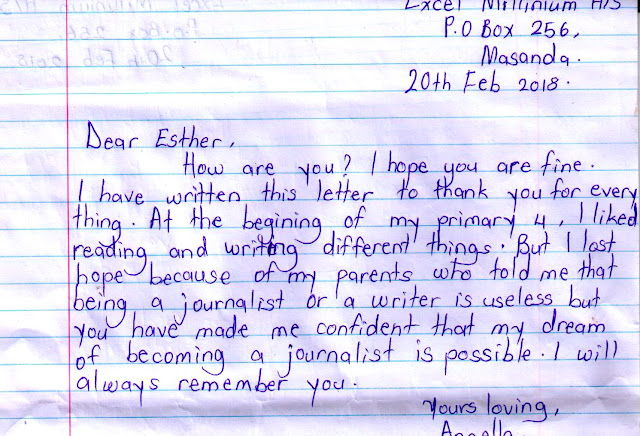 Excel Millinium H/S
P.O Box 256,
Masanda.
20th Feb 2018.
Dear Esther,
How are you? I hope you are fine.
I have written this letter to thank you for every
thing. At the begining of my primary 4, I liked
reading and writing different things. But I lost
hope because of my parents who told me that
being a journalist or a writer is useless but
you have made me confident that my dream
of becoming a journalist is possible. I will
always remember you.
Yours loving,